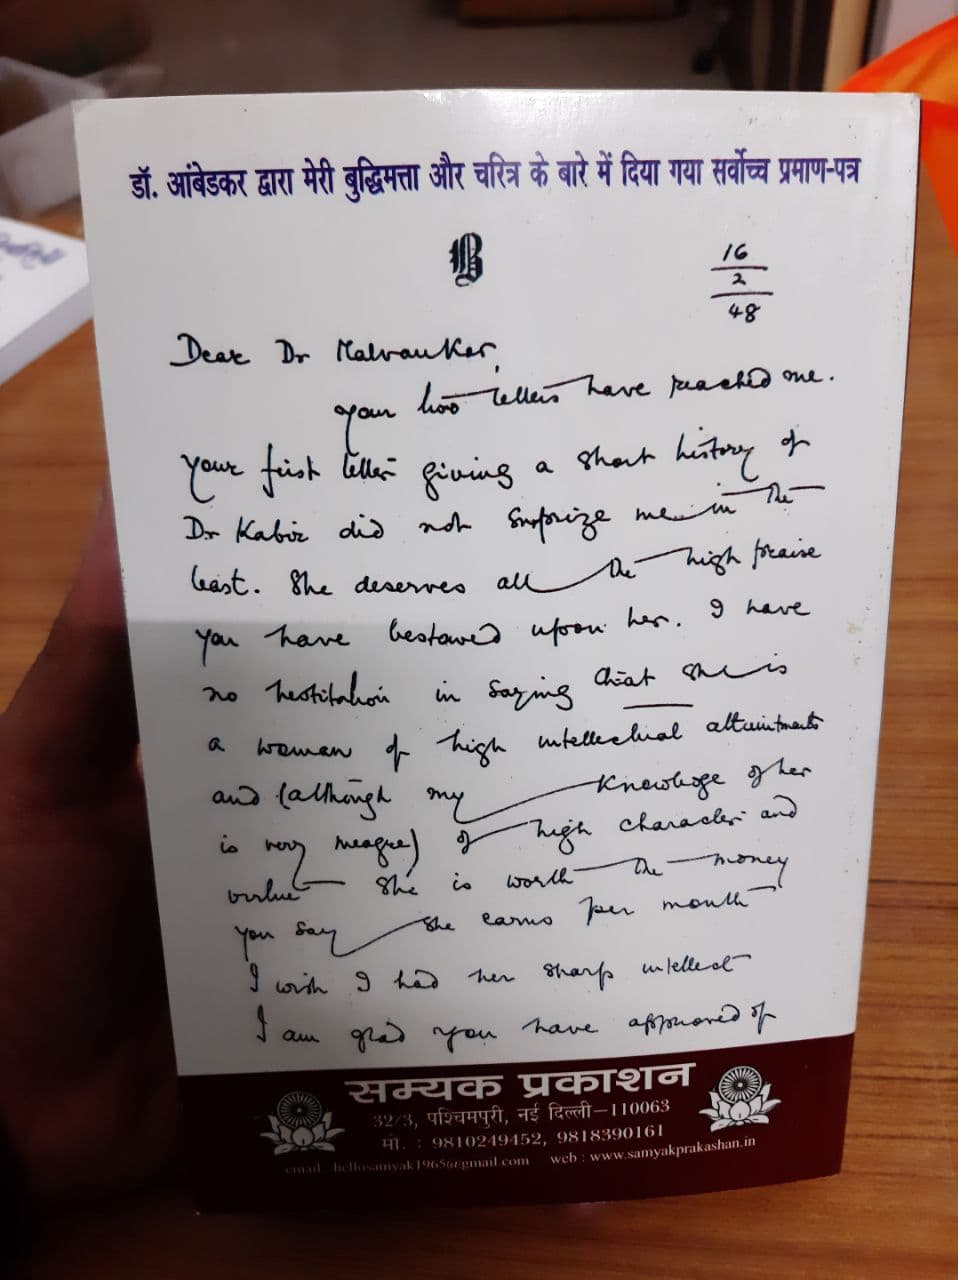 डॉ. आंबेडकर द्वारा मेरी बुद्धिमत्ता और चरित्र के बारे में दिया गया सर्वोच्च प्रमाण-पत्र
B
16
2
48
Dear Dr Malvankar,
your two letters have reached me.
Your first letter giving a short history of
Dr Kabir did not surprize me in the
least. She deserves all the high praise
you have bestowed upon her. I have
no hesitation in saying that she is
a woman of high intellectual attainments
and (although my knowledge of her
is very meagre) of high character and
virtue She is worth the money
you say she earns per month
I wish I had her sharp intellect
I am glad you have approved of
सम्यक प्रकाशन
32/3, पश्चिमपुरी, नई दिल्ली–110063
मो. : 9810249452, 9818390161
email hellosamyak1965@gmail.com web : www.samyakprakashan.in